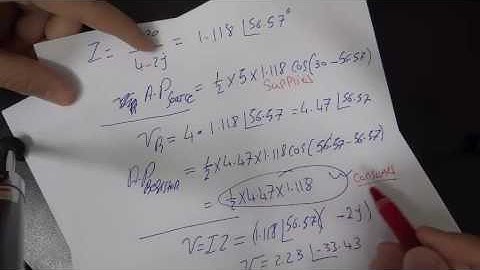 I = 30 / 4-2j = 1.118 ∠56.57°
A.P source = 1/2 × 5 × 1.118 cos(30 - 56.58)
Supplies
VR = 4 * 1.118 ∠56.57 = 4.47 ∠56.57
A.P Resistor = 1/2 × 4.47 × 1.118 cos(56.57 - 56.57)
= 1/2 × 4.47 × 1.118
Consumes
V = IZ = (1.118 ∠56.57)( -2j)
V = 2.23 ∠-33.43